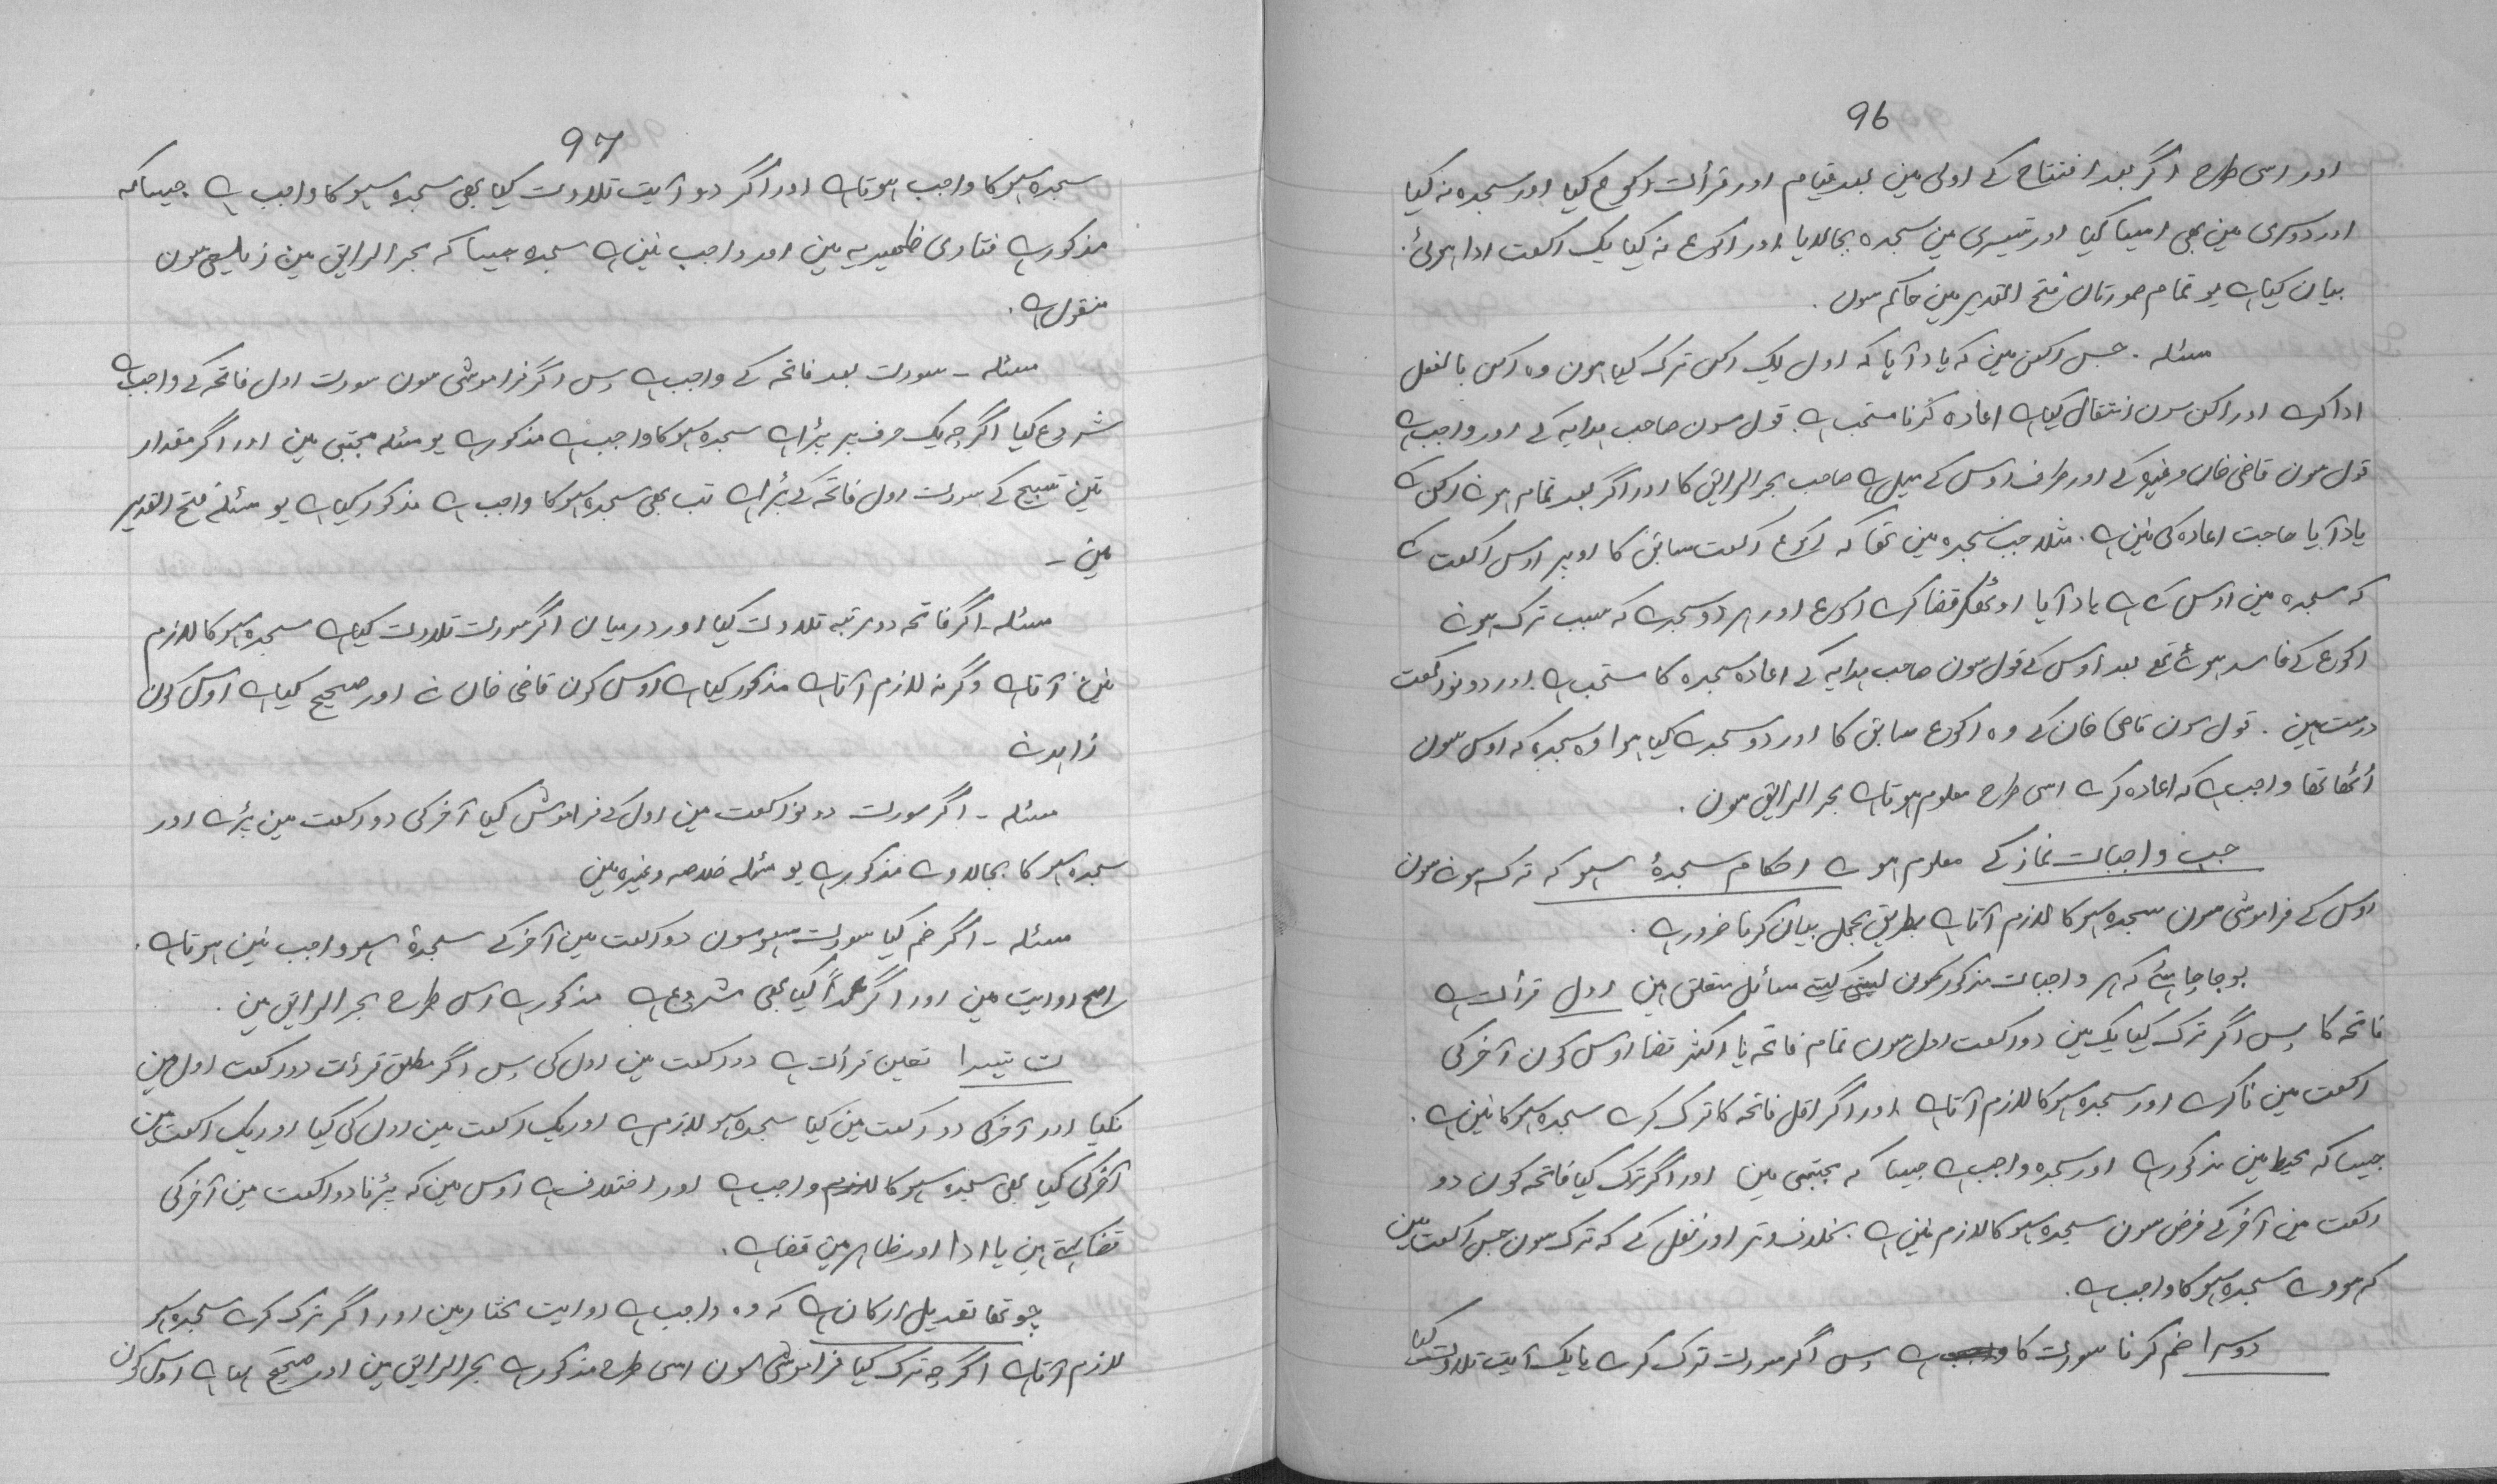 96
اور اسی طرح اگر بعد افتتاح کے اولی مین بعد قیام اور قرأت رکوع کیا اور سجدہ نہ کیا
اور دوسری مین بھی ایسا کیا اور تیسری مین سجدہ بجالایا اور رکوع نہ کیا یک رکعت ادا ہوئی.
بیان کیا ہے یو تمام صورتان فتح القدیر مین حاکم سون.
مسئلہ. جس رکن مین کہ یاد آیا کہ اول یک رکن ترک کیا ہون وہ رکن بالفعل
ادا کرے اور رکن سون انتقال کیا ہے اعادہ کرنا مستحب ہے قول سون صاحب ہدایہ کے اور واجب ہے
قول سون قاضی خان وغیرہ کے اور طرف اوس کے میل ہے صاحب بحر الرایق کا اور اگر بعد تمام ہونے رکن کے
یاد آیا حاجت اعادہ کی نین ہے. مثلا جب سجدہ مین تھا کہ رکوع رکعت سابق کا اوپر اوس رکعت کے
کہ سجدہ مین اوس کے ہے یاد آیا اوٹھکر قضا کرے رکوع اور ہر دو سجدے کہ سبب ترک ہونے
رکوع کے فاسد ہوئے تھے بعد اوس کے قول سون صاحب ہدایہ کے اعادہ سجدہ کا مستحب ہے اور دونو رکعت
درست ہین. قول سون قاضی خان کے وہ رکوع سابق کا اور دو سجدے کیا ہوا وہ سجدہ کہ اوس سون
اُٹھا تھا واجب ہے کہ اعادہ کرے اسی طرح معلوم ہوتا ہے بحر الرایق سون.
جب واجبات نماز کے معلوم ہوے احکام سجدۂ سہو کہ ترک ہونے سون
اوس کے فراموشی سون سجدہ سہو کا لازم آتا ہے بطریق مجمل بیان کرنا ضرور ہے.
بوجا چاہئے کہ ہر واجبات مذکور کون کیتے کیتے مسائل متعلق ہین اول قرأت ہے
فاتحہ کا پس اگر ترک کیا یک مین دو رکعت اول سون تمام فاتحہ یا اکثر قضا اوس کون آخر کی
رکعت مین نا کرے اور سجدہ سہو کا لازم آتا ہے اور اگر اقل فاتحہ کا ترک کرے سجدہ سہو کا نین ہے.
جیسا کہ محیط مین مذکور ہے اور سجدہ واجب ہے جیسا کہ مجتبی مین اور اگر ترک کیا فاتحہ کون دو
رکعت مین آخر کے فرض سون سجدہ سہو کا لازم نین ہے. بخلاف وتر اور نفل کے کہ ترک سون جس رکعت مین
کہ ہووے سجدہ سہو کا واجب ہے.
دوسرا ضم کرنا سورت کا ہے پس اگر سورت ترک کرے یا یک آیت تلاوت کیا
97
سجدہ سہو کا واجب ہوتا ہے اور اگر دو آیت تلاوت کیا بھی سجدہ سہو کا واجب ہے جیسا کہ
مذکور ہے فتاوی ظہیریہ مین اور واجب نین ہے سجدہ جیسا کہ بحر الرایق مین زیلیعی سون
منقول ہے.
مسئلہ ـ سورت بعد فاتحہ کے واجب ہے پس اگر فراموشی سون سورت اول فاتحہ کے واجب ہے
شروع کیا اگرچہ یک حرف پر پڑا ہے سجدہ سہو کا واجب ہے مذکور ہے یو مسئلہ مجتبی مین اور اگر مقدار
تین تسبیح کے سورت اول فاتحہ کے پڑا ہے تب بھی سجدہ سہو کا واجب ہے مذکور کیا ہے یو مسئلہ فتح القدیر
مین ـ
مسئلہ ـ اگر فاتحہ دو مرتبہ تلاوت کیا اور درمیان اگر سورت تلاوت کیا ہے سجدہ سہو کا لازم
نین آتا ہے وگرنہ لازم آتا ہے مذکور کیا ہے اوس کون قاضی خان نے اور صحیح کیا ہے اوس کون
زاہد نے
مسئلہ ـ اگر سورت دونو رکعت مین اول کے فراموش کیا آخر کی دو رکعت مین پڑے اور
سجدہ سہو کا بجالاوے مذکور ہے یو مسئلہ خلاصہ وغیرہ مین
مسئلہ ـ اگر ضم کیا سورت سہو سون دو رکعت مین آخر کے سجدۂ سہو واجب نین ہوتا ہے.
اصح روایت مین اور اگر عمداً کیا بھی مشروع ہے مذکور ہے اس طرح بحر الرایق مین.
تیسرا تعین قرأت ہے دو رکعت مین اول کی پس اگر مطلق قرأت دو رکعت اول مین
نکیا اور آخر کی دو رکعت مین کیا سجدہ سہو لازم ہے اور یک رکعت مین اول کی کیا اور یک رکعت مین
آخر کی کیا بھی سجدہ سہو کا واجب ہے اور اختلاف ہے اوس مین کہ پڑنا دو رکعت مین آخر کی
قضا ہے یا ادا اور ظاہر مین قضا ہے.
چوتھا تعدیل ارکان ہے کہ وہ واجب ہے روایت مختار مین اور اگر ترک کرے سجدہ سہو
لازم آتا ہے اگرچہ ترک کیا فراموشی سون اسی طرح مذکور ہے بحر الرایق مین اور صحیح کہا ہے اوس کون